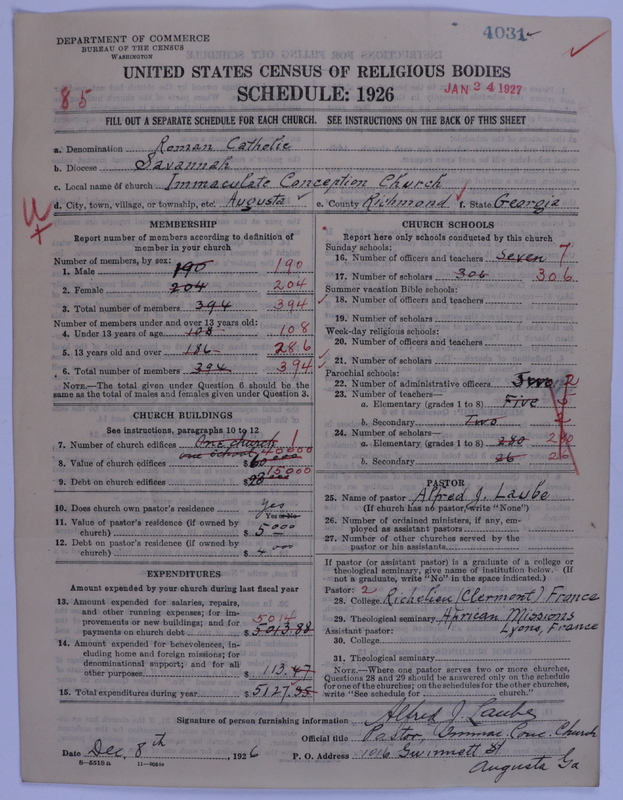 DEPARTMENT OF COMMERCE
BUREAU OF THE CENSUS
WASHINGTON
4031
UNITED STATES CENSUS OF RELIGIOUS BODIES
SCHEDULE: 1926
JAN 24 1927
85
FILL OUT A SEPARATE SCHEDULE FOR EACH CHURCH. SEE INSTRUCTIONS ON THE BACK OF THIS SHEET
a. Denomination Roman Catholic
b. Diocese Savannah
c. Local name of church Immaculate Conception Church
d. City, town, village, or township, etc. Augusta e. County Richmond f. State Georgia
MEMBERSHIP
Report number of members according to definition of
member in your church
Number of members, by sex:
1. Male 190 190
2. Female 204 204
3. Total number of members 394 394
Number of members under and over 13 years old:
4. Under 13 years of age 108 108
5. 13 years old and over 186 286
6. Total number of members 394 394
NOTE.—The total given under Question 6 should be
the same as the total of males and females given under Question 3.
CHURCH BUILDINGS
See instructions, paragraphs 10 to 12
7. Number of church edifices One church 1
one school 40000
8. Value of church edifices $
15000
9. Debt on church edifices $
10. Does church own pastor's residence? yes
Yes or No
11. Value of pastor's residence (if owned by
church) $ 5000
12. Debt on pastor's residence (if owned by
church) $ 4000
EXPENDITURES
Amount expended by your church during last fiscal year
13. Amount expended for salaries, repairs,
and other running expenses; for im-
provements or new buildings; and for
payments on church debt $ 5013.88 5014
14. Amount expended for benevolences, in-
cluding home and foreign missions; for
denominational support; and for all
other purposes $ 113.47
15. Total expenditures during year $ 5127.35
CHURCH SCHOOLS
Report here only schools conducted by this church
Sunday schools:
16. Number of officers and teachers Seven 7
17. Number of scholars 306 306
Summer vacation Bible schools:
18. Number of officers and teachers
19. Number of scholars
Week-day religious schools:
20. Number of officers and teachers
21. Number of scholars
Parochial schools:
22. Number of administrative officers Two 2
23. Number of teachers—
a. Elementary (grades 1 to 8) Five
b. Secondary Two
24. Number of scholars—
a. Elementary (grades 1 to 8) 280 280
b. Secondary 26 26
PASTOR
25. Name of pastor Alfred J. Laube
(If church has no pastor, write "None")
26. Number of ordained ministers, if any, em-
ployed as assistant pastors
27. Number of other churches served by the
pastor or his assistants
If pastor (or assistant pastor) is a graduate of a college or
theological seminary, give name of institution below. (If
not a graduate, write "No" in the space indicated.)
Pastor: 2
28. College Richelieu (Clermont) France
29. Theological seminary African Missions
Lyons, France
Assistant pastor:
30. College
31. Theological seminary
NOTE.—Where one pastor serves two or more churches,
Questions 28 and 29 should be answered only on the schedule
for one of the churches; on the schedules for the other churches,
write "See schedule for church."
Signature of person furnishing information Alfred J Laube
Official title Pastor, Immac. Conc. Church
Date Dec. 8th, 1926 P. O. Address 1016 Gwinnett St
Augusta Ga
8—5519a